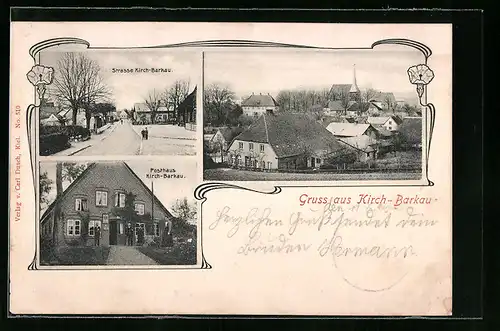 Strasse Kirch-Barkau.
Posthaus
Kirch-Barkau.
Verlag v. Carl Dusch, Kiel. No. 510
Gruss aus Kirch-Barkau
Herzlichen Gruß sendet dein
Bruder Hermann